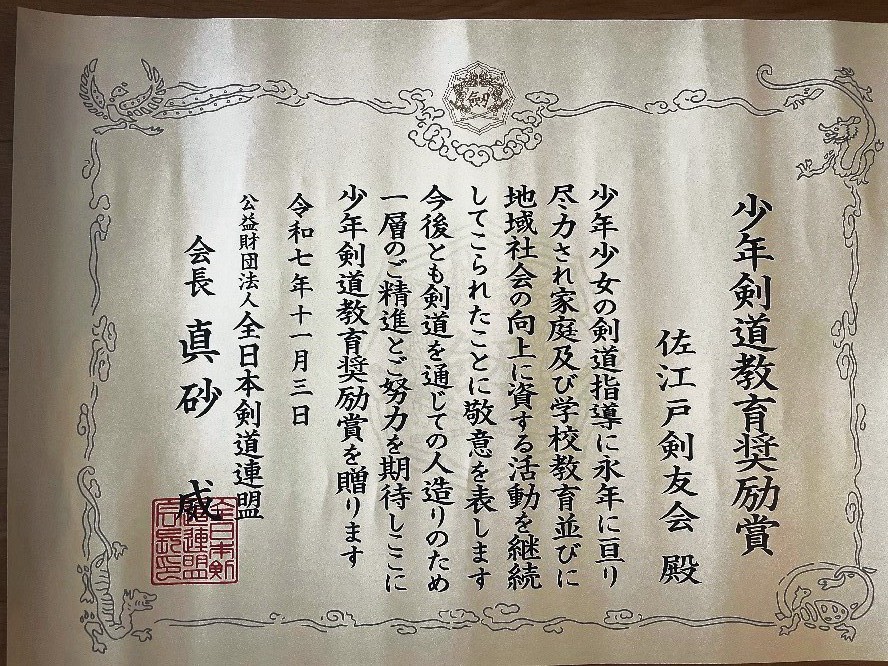 少年剣道教育奨励賞
佐江戸剣友会 殿
少年少女の剣道指導に永年に亘り
尽力され家庭及び学校教育並びに
地域社会の向上に資する活動を継続
してこられたことに敬意を表します
今後とも剣道を通じての人造りのため
一層のご精進とご努力を期待しここに
少年剣道教育奨励賞を贈ります
令和七年十一月三日
公益財団法人全日本剣道連盟
会長 真砂 威